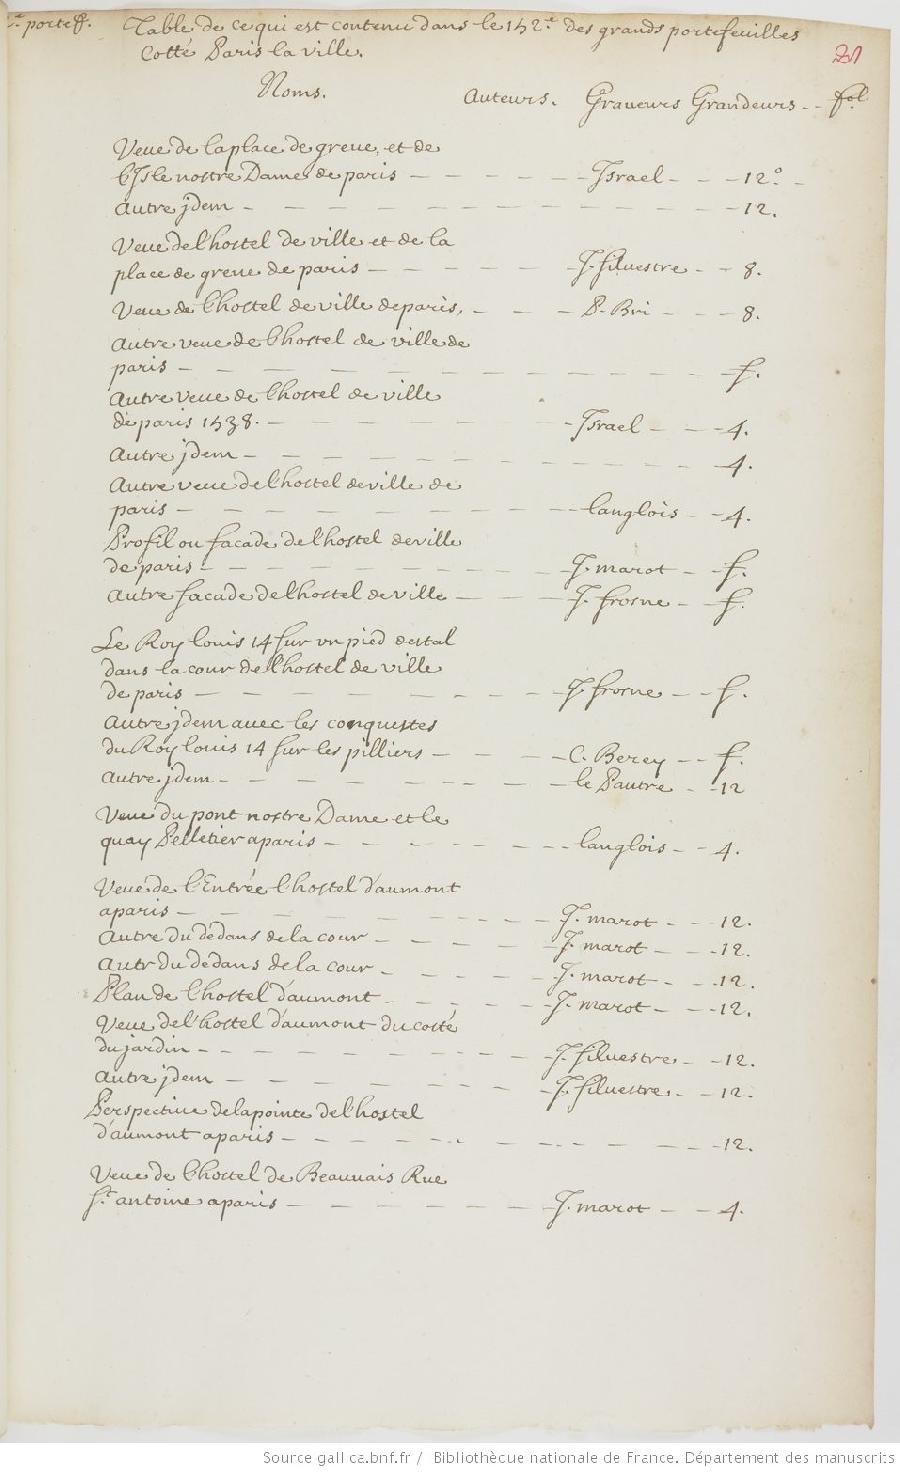 porteff. Table de ce qui est contenu dans le 152.e des grands portefeuilles
Cotté Paris la ville.
Noms. Auteurs. Graveurs Grandeurs fol.
Veue de la place de greve, et de
l'Isle nostre Dame de paris Israel 12.º
Autre jdem 12.
Veue de l'hostel de ville et de la
place de greve de paris J. silvestre 8.
Veue de l'hostel de ville de paris. P. Bri 8.
Autre veue de l'hostel de ville de
paris f.
Autre veue de l'hostel de ville
de paris 1538. Israel 4.
Autre jdem 4.
Autre veue de l'hostel de ville de
paris langlois 4.
Profil ou facade de l'hostel de ville
de paris J. marot f.
Autre facade de l'hostel de ville J. frosne f.
Le Roy louis 14 sur un pied destal
dans la cour de l'hostel de ville
de paris J. frosne f.
Autre jdem avec les conquestes
du Roy louis 14 sur les pilliers C. Berey f.
Autre jdem le Pautre 12
Veue du pont nostre Dame et le
quay Pelletier a paris langlois 4.
Veue de l'Entrée l'hostel d'aumont
a paris J. marot 12.
Autre du dedans de la cour J. marot 12.
Autr du dedans de la cour J. marot 12.
Plan de l'hostel d'aumont J. marot 12.
Veue de l'hostel d'aumont du costé
du jardin J. silvestre 12.
Autre jdem J. silvestre. 12.
Perspective de la pointe de l'hostel
d'aumont a paris 12.
Veue de l'hostel de Beauvais Rue
st. antoine a paris J. marot 4.
Source gallica.bnf.fr / Bibliothèque nationale de France. Département des manuscrits